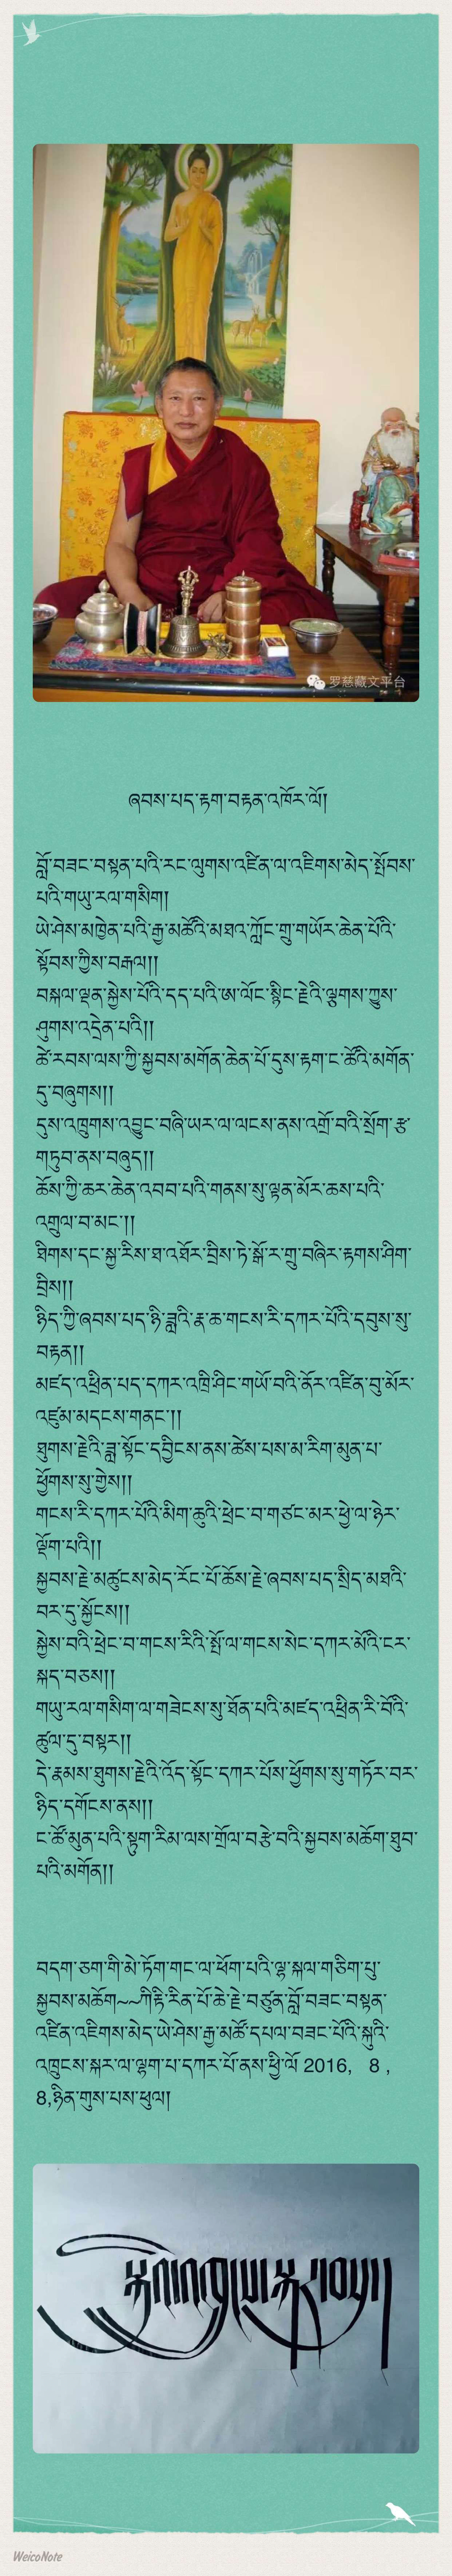 罗慈藏文平台
ཞབས་པད་རྟག་བརྟན་འཁོར་ལོ།
བློ་བཟང་བསྟན་པའི་རང་ལུགས་འཛིན་ལ་འཇིགས་མེད་སྤོབས་
པའི་གཡུ་རལ་གསིག།
ཡེ་ཤེས་མཁྱེན་པའི་རྒྱ་མཚོའི་མཐའ་ཀློང་གྲུ་གཡོར་ཆེན་པོའི་
སྟོབས་ཀྱིས་བརྒལ།།
བསྐལ་ལྡན་སྐྱེས་པོའི་དད་པའི་ཨ་ལོང་སྙིང་རྗེའི་ལྕགས་ཀྱུས་
ཤུགས་འདྲེན་པའི།།
ཚེ་རབས་ལས་ཀྱི་སྐྱབས་མགོན་ཆེན་པོ་དུས་རྟག་ང་ཚོའི་མགོན་
དུ་བཞུགས།།
དུས་འཁྲུགས་འབྱུང་བཞི་ཡར་ལ་ལངས་ནས་འགྲོ་བའི་སྲོག་རྩ་
གཏུབ་ནས་བཞུད།།
ཆོས་ཀྱི་ཆར་ཆེན་འབབ་པའི་གནས་སུ་ལྟན་མོར་ཆས་པའི་
འགྲུལ་བ་མང་།།
ཐིགས་དང་སྐྱ་རིས་ཐ་འཐོར་བྲིས་ཏེ་སྒོ་ར་གྲུ་བཞིར་རྟགས་ཤིག་
བྲིས།།
ཉིད་ཀྱི་ཞབས་པད་ཉི་ཟླའི་རྣ་ཆ་གངས་རི་དཀར་པོའི་དབུས་སུ་
བརྟན།།
མཛད་འཕྲིན་པད་དཀར་འཁྲི་ཤིང་གཡོ་བའི་ནོར་འཛིན་བུ་མོར་
འཛུམ་མདངས་གནང་།།
ཐུགས་རྗེའི་ཟླ་སྟོང་དབྱིངས་ནས་ཚེས་པས་མ་རིག་མུན་པ་
ཕྱོགས་སུ་གྱེས།།
གངས་རི་དཀར་པོའི་མིག་ཆུའི་ཕྲེང་བ་གཙང་མར་ཕྱེ་ལ་ཉེར་
ལྡོག་པའི།།
སྐྱབས་རྗེ་མཚུངས་མེད་རོང་པོ་ཆོས་རྗེ་ཞབས་པད་སྲིད་མཐའི་
བར་དུ་སྐྱོངས།།
སྐྱེས་བའི་ཕྲེང་བ་གངས་རིའི་སྤོ་ལ་གངས་སེང་དཀར་མོའི་ངར་
སྐད་བཅས།།
གཡུ་རལ་གསིག་ལ་གཟེངས་སུ་ཐོན་པའི་མཛད་འཕྲིན་རི་བོའི་
ཚུལ་དུ་བསྟར།།
དེ་རྣམས་ཐུགས་རྗེའི་འོད་སྟོང་དཀར་པོས་ཕྱོགས་སུ་གཏོར་བར་
ཉིད་དགོངས་ནས།།
ང་ཚོ་མུན་པའི་སྟུག་རིམ་ལས་གྲོལ་བརྩེ་བའི་སྐྱབས་མཆོག་ཐུབ་
པའི་མགོན།།
བདག་ཅག་གི་མེ་ཏོག་གང་ལ་ཕོག་པའི་ལྷ་སྐལ་གཅིག་པུ་
སྐྱབས་མཆོག~~ཀིརྟི་རིན་པོ་ཆེ་རྗེ་བཙུན་བློ་བཟང་བསྟན་
འཛིན་འཇིགས་མེད་ཡེ་ཤེས་རྒྱ་མཚོ་དཔལ་བཟང་པོའི་སྐུའི་
འཁྲུངས་སྐར་ལ་ལྷག་པ་དཀར་པོ་ནས་ཕྱི་ལོ 2016, 8 ,
8,ཉིན་གུས་པས་ཕུལ།
WeicoNote